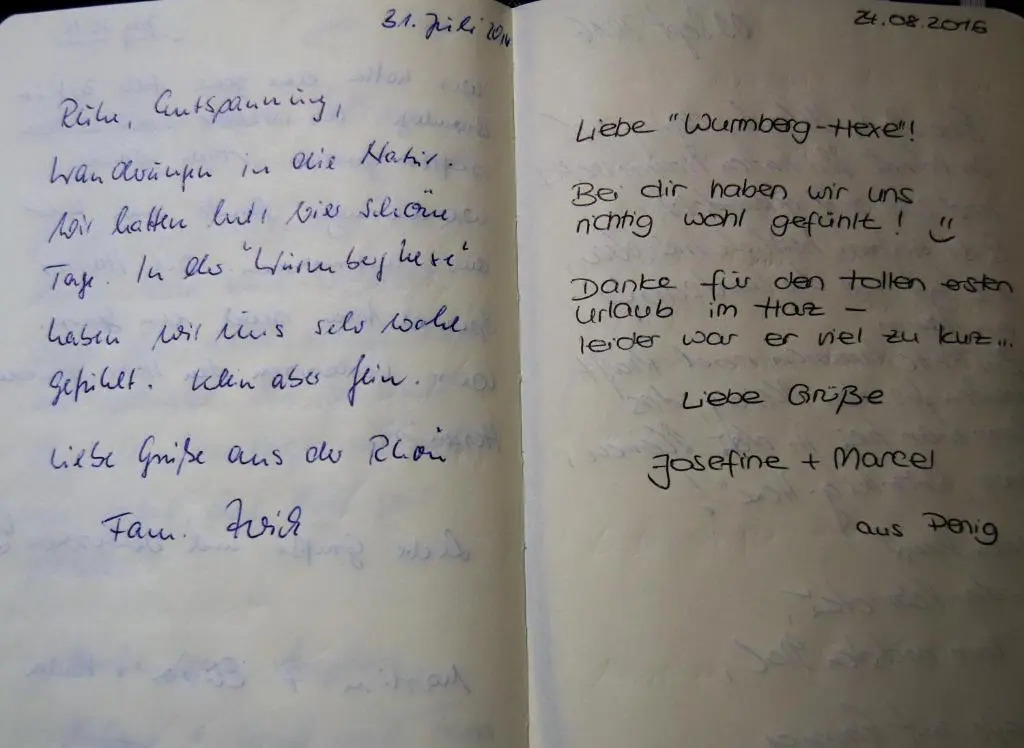 31. Juli 201
Ruhe, Entspannung,
Wandrungen in die Natur.
Wir hatten hier vier schöne
Tage. In der "Wurmberghexe"
haben wir uns sehr wohl
gefühlt. Klein aber fein.
Liebe Grüße aus der Rhön
Fam.
24.08.2016
Liebe "Wurmberg-Hexe"!
Bei dir haben wir uns
richtig wohl gefühlt! :)
Danke für den tollen ersten
Urlaub im Harz –
leider war er viel zu kurz...
Liebe Grüße
Josefine + Marcel
aus Penig